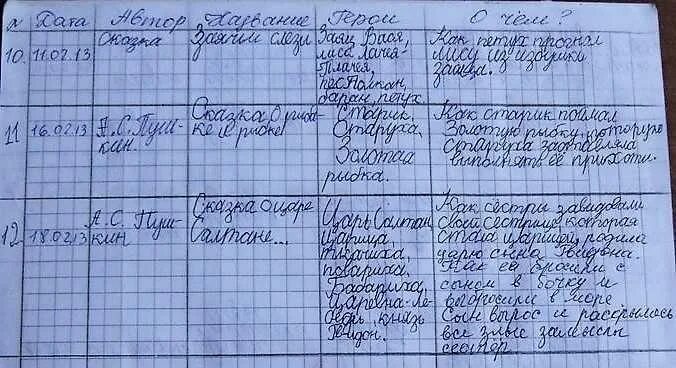 № Дата Автор Название Герои О чём?
10. 11.02.13 Сказка Заячьи слёзы Заяц Вася, лиса Лачея- Плачея, пёс Полкан, баран, петух. Как петух прогнал лису из избушки зайца.
11 16.02.13 А.С.Пуш- кин. Сказка О рыба- ке и рыбке Старик, Старуха, Золотая рыбка. Как старик поймал Золотую рыбку, которую старуха заставляла выполнять её прихоти.
12. 18.02.13 А.С. Пуш- кин Сказка О царе Салтане... Царь Салтан, Царица, ткачиха, повариха, Бабариха, Царевна-ле- бедь, князь Гвидон. Как сёстры завидовали своей сестрице, которая стала царицей, родила царю сына Гвидона. Как её бросили с сыном в бочку и выбросили в море Сын вырос и раскрылось все злые замыслы сестёр